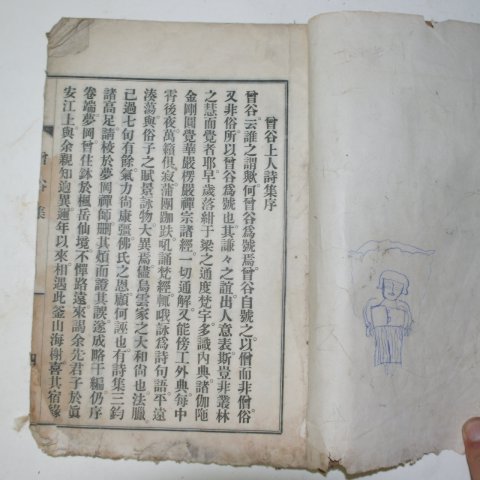 曾谷上人詩集序
曾谷云誰之謂歟何曾谷爲號焉曾谷自號之以僧而非僧俗
又非俗所以曾谷爲號也其謙々之誼出人意表斯豈非叢林
之慧而覺者耶早歲落紺于梁之通度梵字多識內典諸伽陁
金剛圓覺華嚴楞嚴禪宗諸經一切通解又能傍工外典每中
霄後夜萬籟俱寂蒲團跏趺吼誦梵經輒哦詠爲詩句語平遠
湊蕩與俗子之賦景詠物大異焉儘烏雲家之大和尙也法臘
已過七旬有餘氣力尙康彊佛氏之恩顧何誣也有詩集三鈞
諸高足請梭於夢岡禪師刪其煩而證其誤遂成略干編仍序
卷端夢岡曾住鉢於楓岳仙境不憚路遠來謁余先君子於眞
安江上與余親知迨異邇年以來相遇此釜山海榭喜其宿緣
曾谷集
四